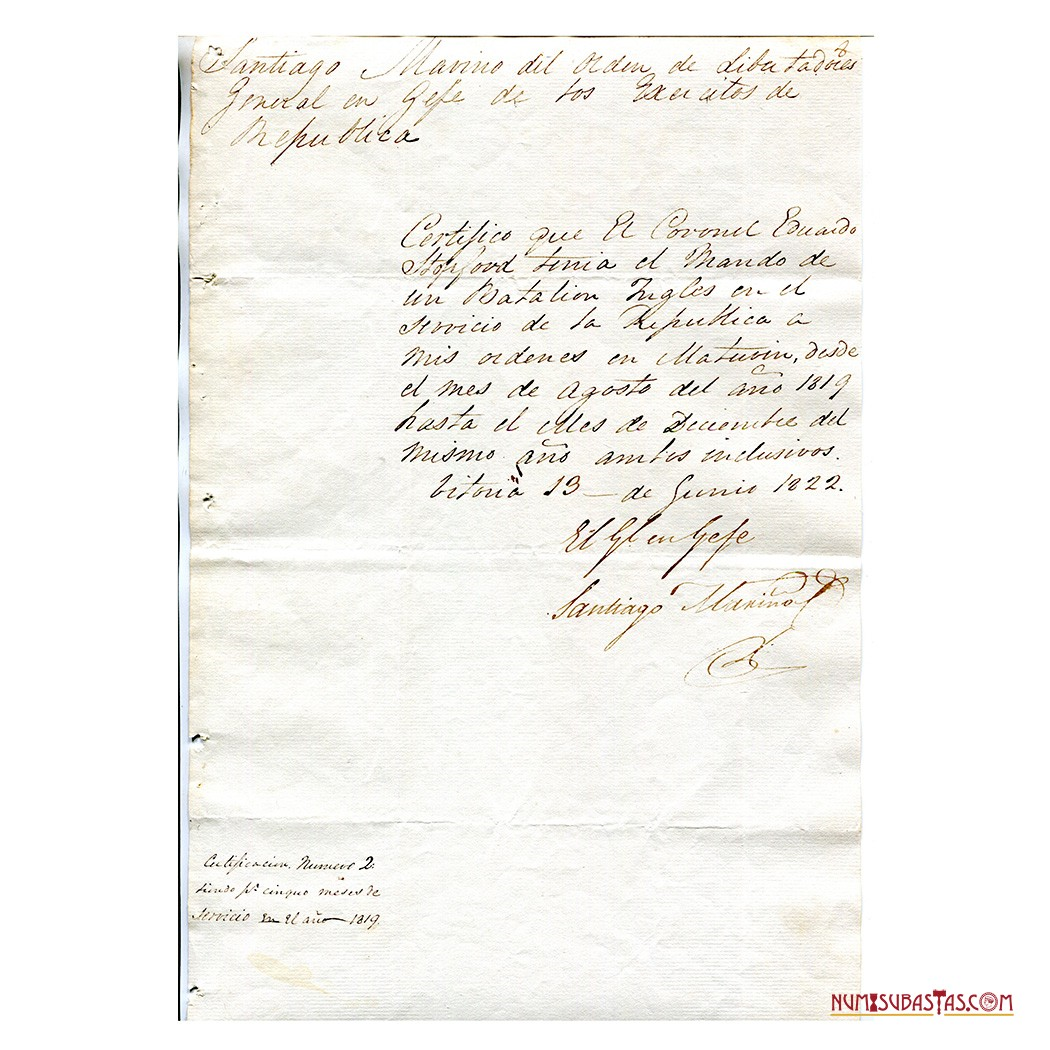 Santiago Marino del orden de Libertadores
General en Gefe de los Exercitos de
Republica
Certifico que El Coronel Eduardo
Stopford tenia el Mando de
un Batalion Ingles en el
servicio de la Republica a
mis ordenes en Maturin, desde
el mes de agosto del año 1819
hasta el Mes de Deciembre del
mismo año ambos inclusivos.
Vitoria 13 — de Junio 1822.
El Gl. en Gefe
Santiago Mariño
Certificacion. Numero 2.
siendo pr. cinquo meses de
servicio en el año — 1819.
NUMISUBASTAS.COM